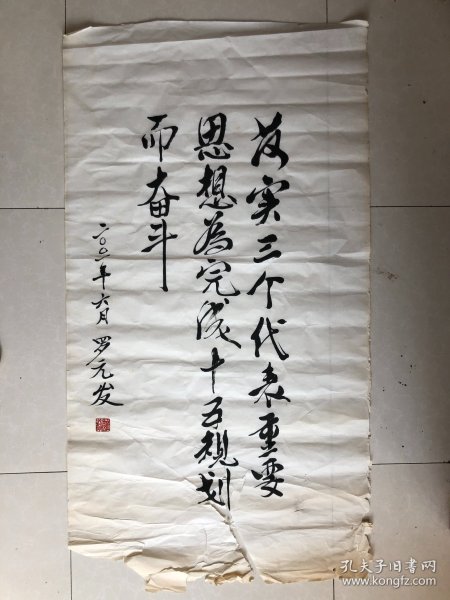 落实三个代表重要
思想为完成十五规划
而奋斗
二〇〇一年六月 罗元发
孔夫子旧书网
www.kongfz.com